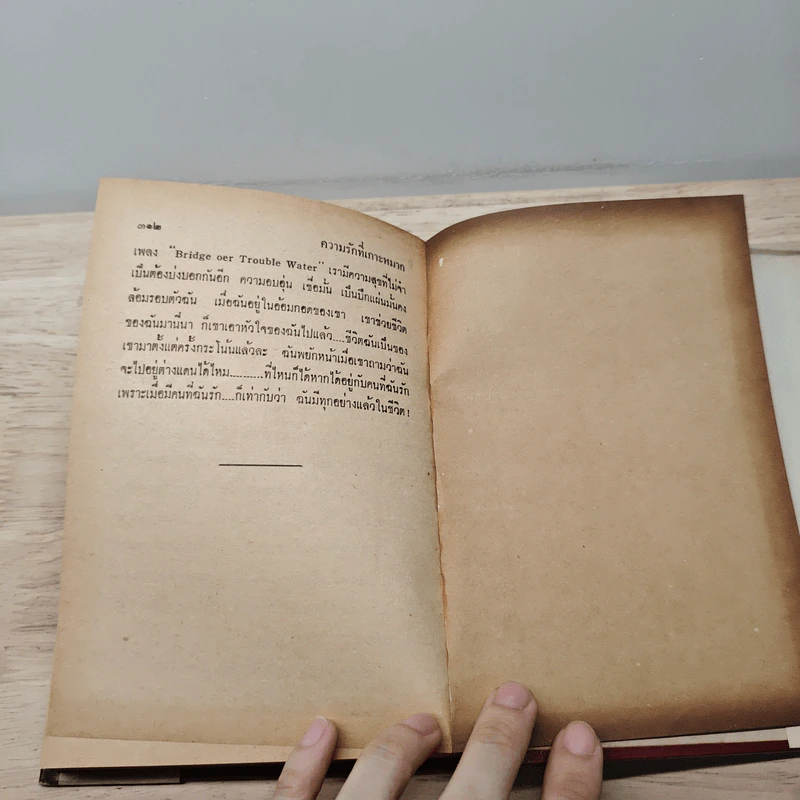 ๓๑๒
ความรักที่เกาะหมาก
เพลง "Bridge oer Trouble Water" เรามีความสุขที่ไม่จำ
เป็นต้องบ่งบอกกันอีก ความอบอุ่น เชื่อมั่น เป็นปึกแผ่นมั่นคง
ล้อมรอบตัวฉัน เมื่อฉันอยู่ในอ้อมกอดของเขา เขาช่วยชีวิต
ของฉันมานี่นา ก็เขาเอาหัวใจของฉันไปแล้ว....ชีวิตฉันเป็นของ
เขามาตั้งแต่ครั้งกระโน้นแล้วละ ฉันพยักหน้าเมื่อเขาถามว่าฉัน
จะไปอยู่ต่างแดนได้ไหม..........ที่ไหนก็ได้หากได้อยู่กับคนที่ฉันรัก
เพราะเมื่อมีคนที่ฉันรัก....ก็เท่ากับว่า ฉันมีทุกอย่างแล้วในชีวิต!